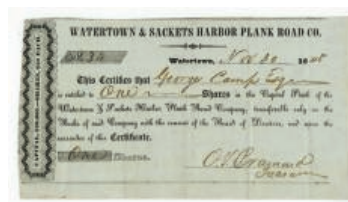 CAPITAL $40,000—SHARES, $50 EACH.
WATERTOWN & SACKETS HARBOR PLANK ROAD CO.
Watertown, Nov 20 18
This Certifies that George Camp Esqr
is entitled to One Shares in the Capital Stock of the
Watertown & Sackets Harbor Plank Road Company, transferable only on the
Books of said Company with the consent of the Board of Directors, and upon the
surrender of this Certificate.
One Shares.
O. V. Brainard